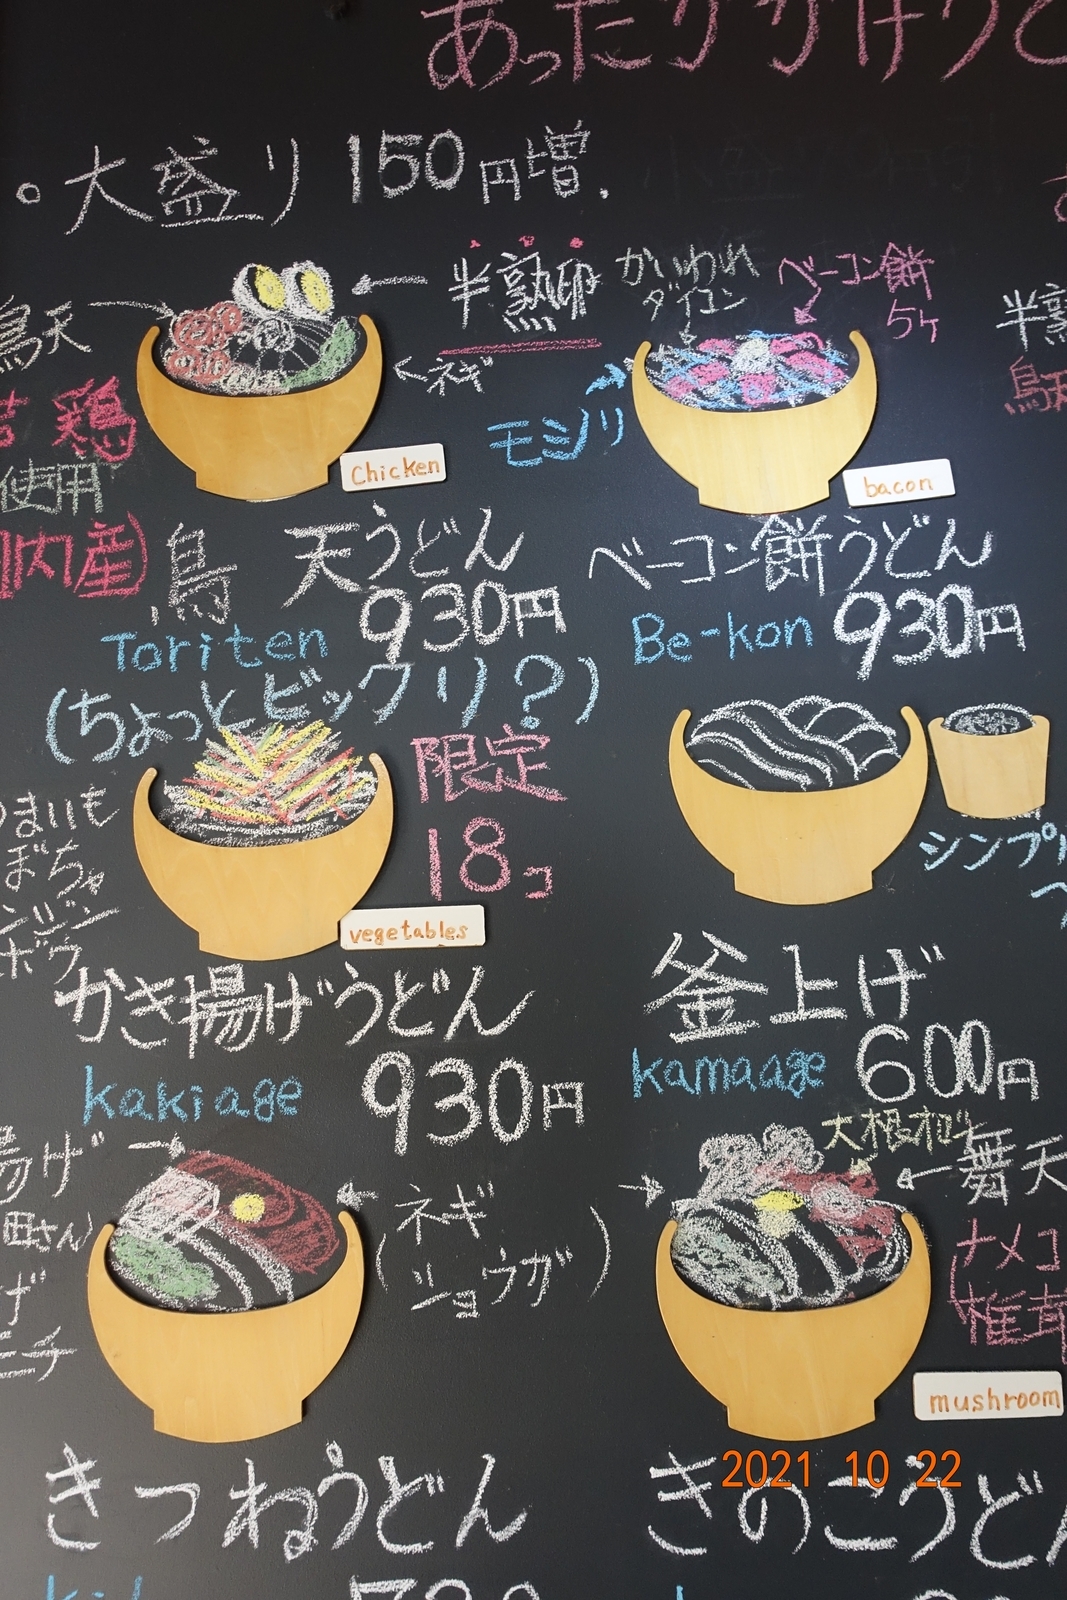 あったかかけうど
。大盛り150円増.
半熟卵
かいわれ
ダイコン
ベーコン餅
5ヶ
鳥天
半熟
鳥天
ネギ
モジリ
鶏
使用
内産)
Chicken
bacon
鳥天うどん
Toriten 930円
ベーコン餅うどん
Be-kon 930円
(ちょっとビックリ?)
限定
18コ
シンプ
vegetables
かき揚げうどん
kakiage 930円
釜上げ
kamaage 600円
揚げ
ネギ
(ショウガ)
大根
舞天
ナメコ
椎茸
mushroom
きつねうどん
きのこうど
2021 10 22